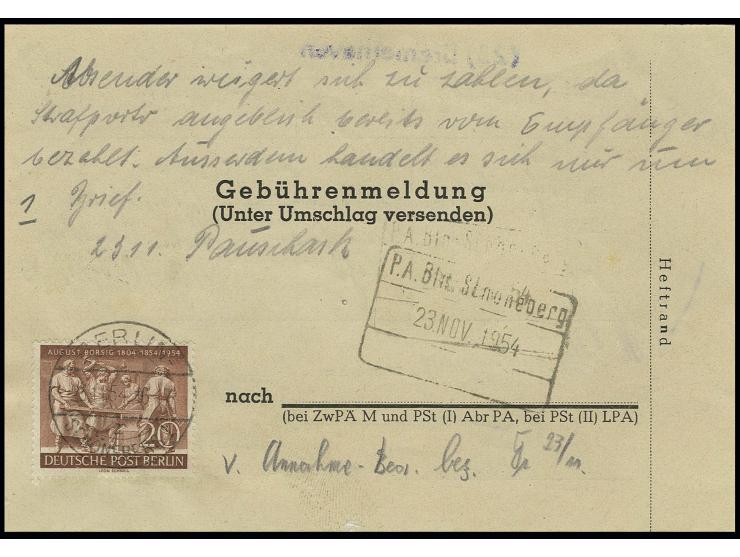 Absender weigert sich zu zahlen, da
Strafporto angeblich bereits vom Empfänger
bezahlt. Ausserdem handelt es sich nur um
1 Brief.
Gebührenmeldung
(Unter Umschlag versenden)
23 11.
P.A. Bln.
P.A. Bln. Schöneberg
23 NOV. 1954
Heftrand
BERLIN
AUGUST BORSIG 1804-1854/1954
20
DEUTSCHE POST BERLIN
nach
(bei ZwPÄ M und PSt (I) Abr PA, bei PSt (II) LPA)
v. Annahme-Bea. bez. 23/11.